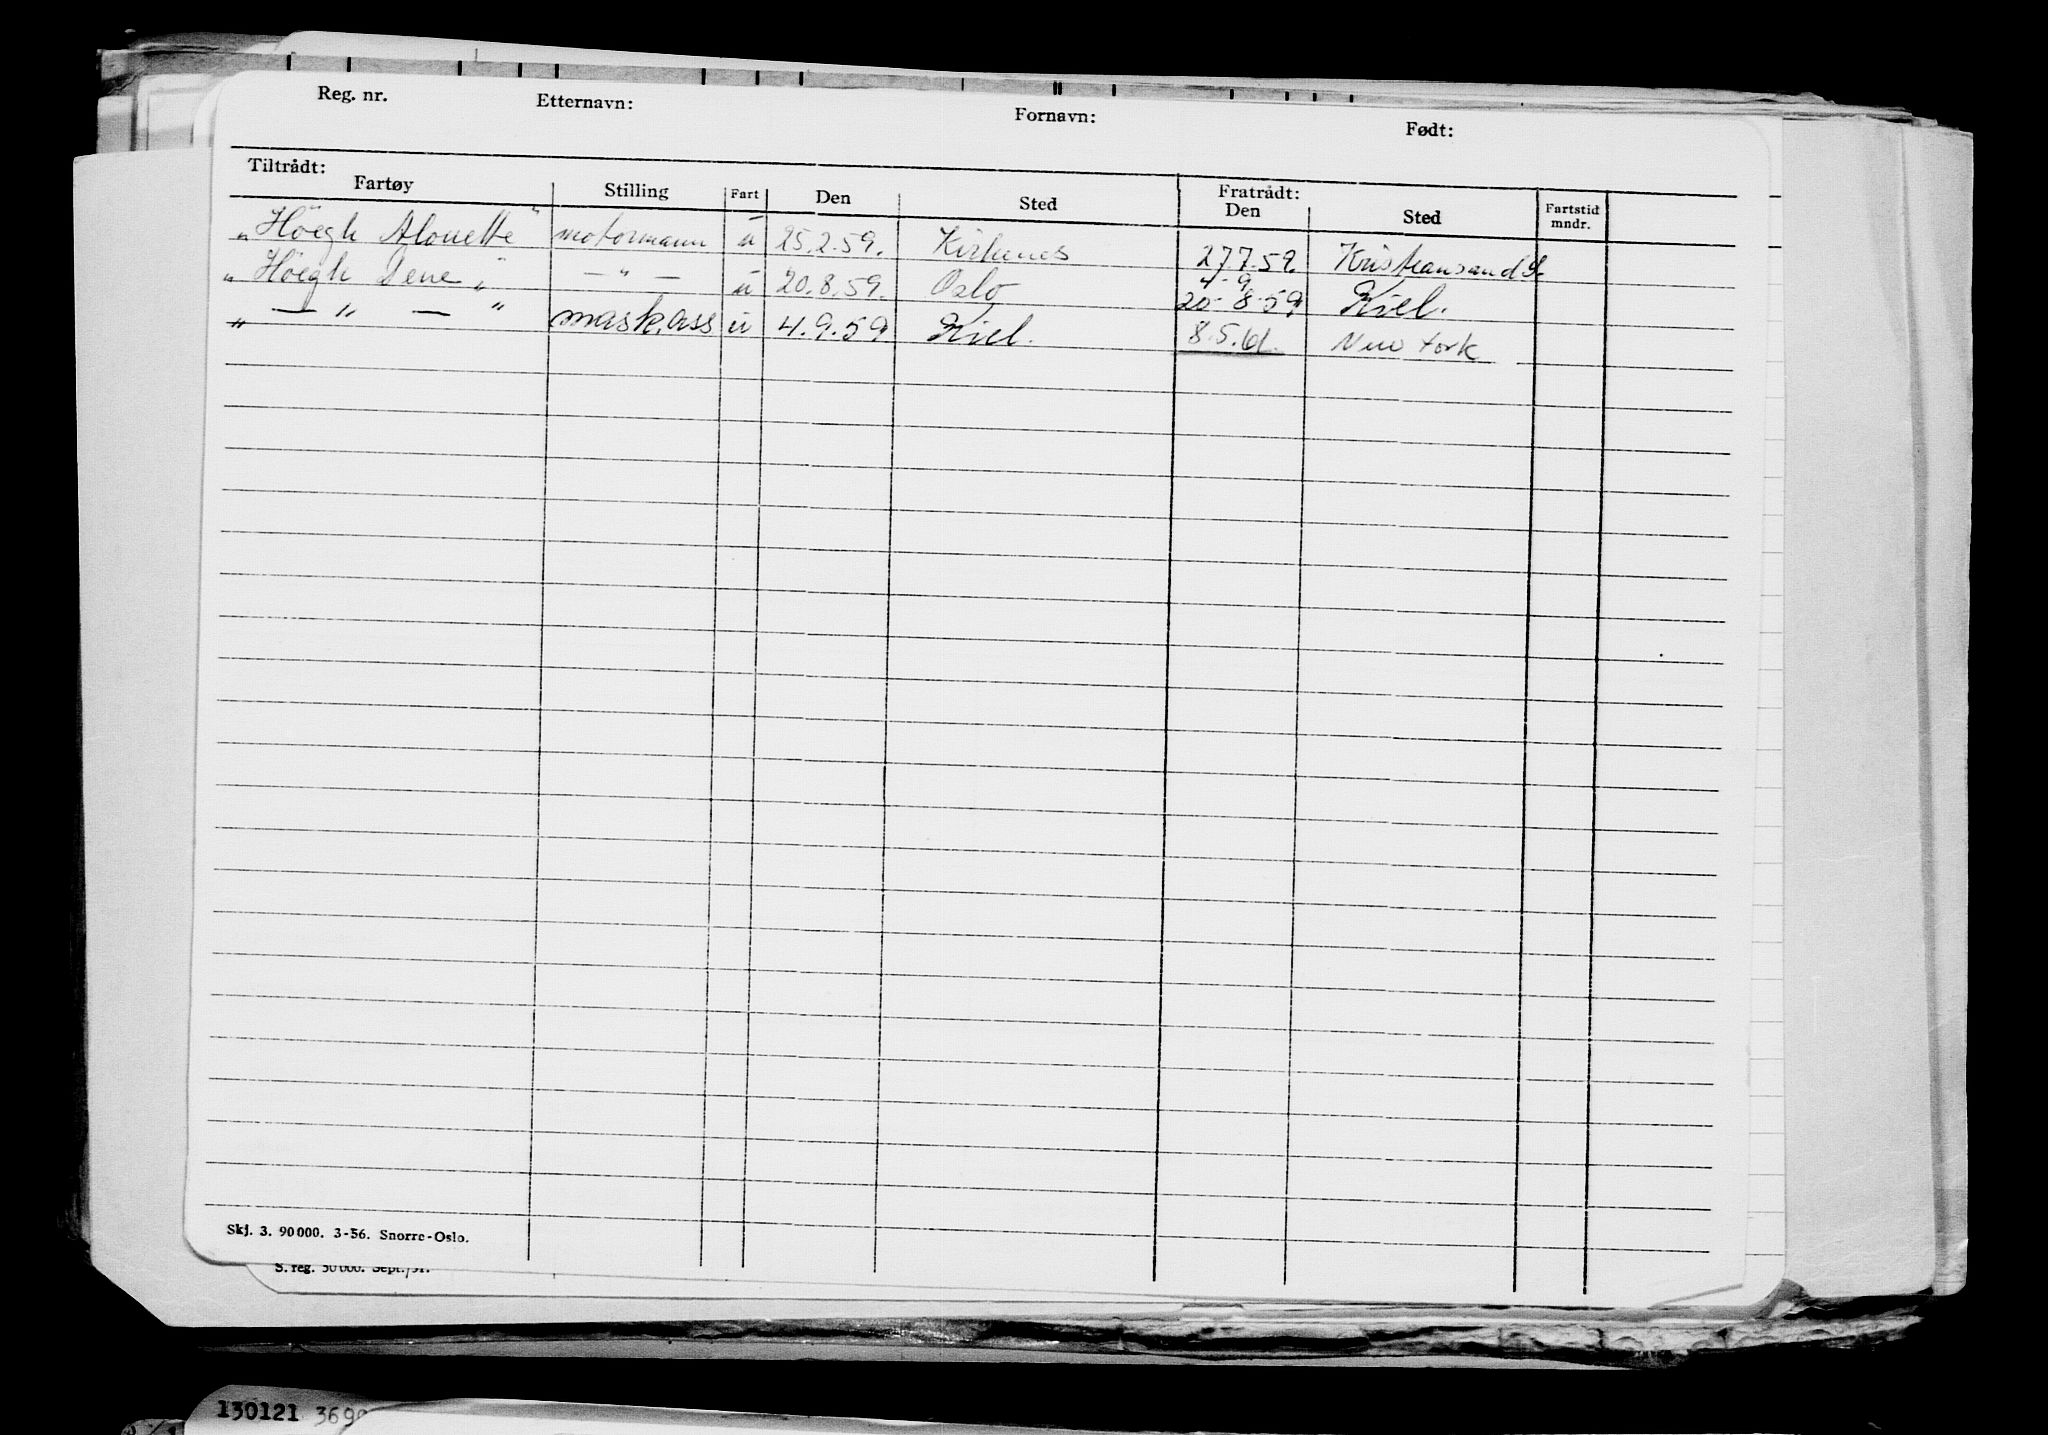 Reg. nr. Etternavn: Fornavn: Født:
Tiltrådt: Fratrådt:
Fartøy Stilling Fart Den Sted Den Sted Fartstid mndr.
„Höegh Alouette" motormann u 25.2.59. Kirkenes 27.7.59. Kristiansand S.
4-9
„Höegh Dene" — " — u 20.8.59. Oslo 20-8-59 Kiel.
„ — " — " mask.ass u 4.9.59 Kiel. 8.5.61. New York
Skj. 3. 90000. 3-56. Snorre-Oslo.
S. reg. 50000. Sept./51.
130121 369